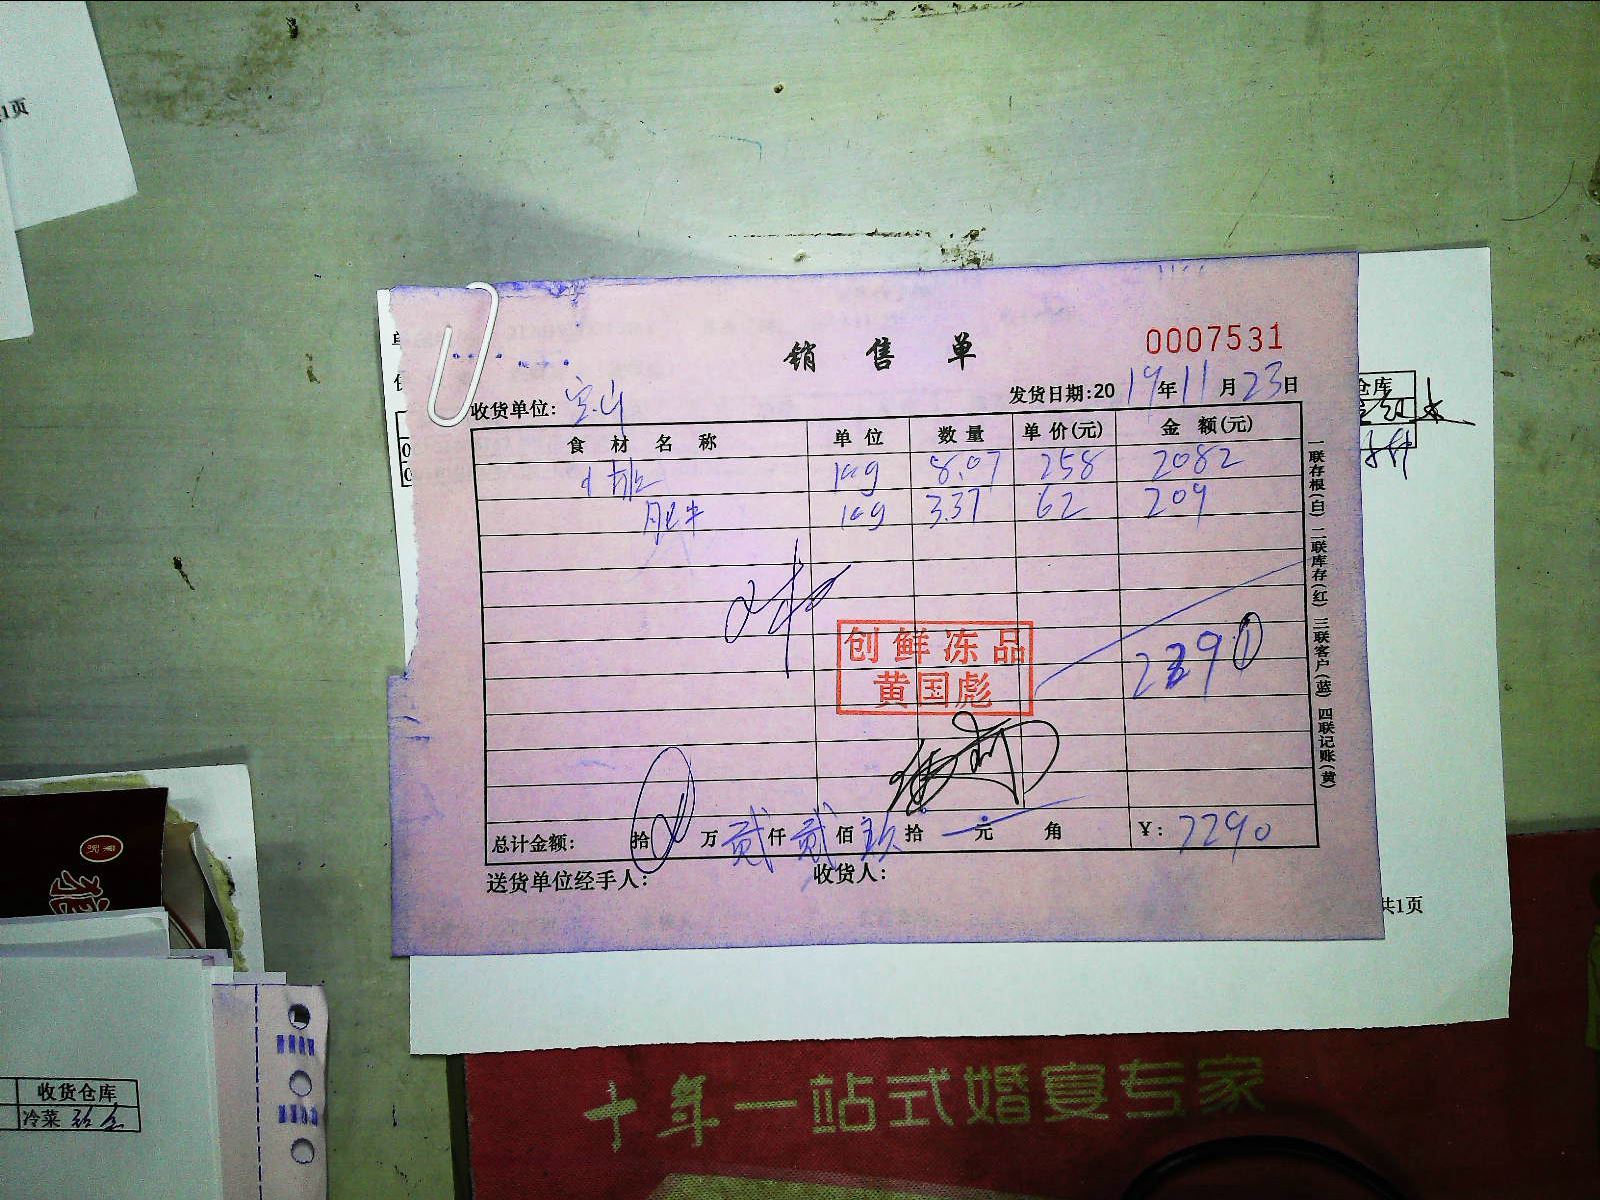 1页
销售单
0007531
收货单位: 宝山
发货日期:2019年11月23日
食材名称 单位 数量 单价(元) 金额(元)
kg 8.07 258 2082
肥牛 kg 3.37 62 209
2290
创鲜冻品
黄国彪
总计金额: 拾 万 贰仟 贰佰 玖拾 元 角 ¥: 2290
送货单位经手人: 收货人:
一联存根(白) 二联库存(红) 三联客户(蓝) 四联记账(黄)
仓库
共1页
收货仓库
冷菜
十年一站式婚宴专家